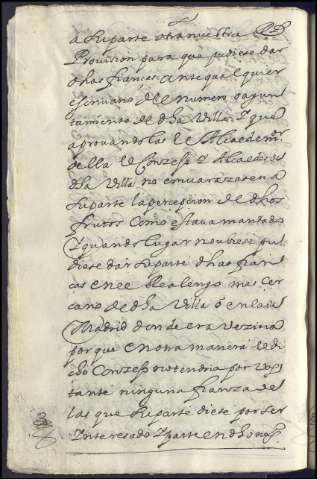 a su parte otra nuestra R.l
Provision para que pudiese dar
dhas fianzas ante qualquier
escrivano del numero o ayun
tamiento de dha Villa, y que
aprovandolas el Alcalde mor
de ella el Conzejo y Alcaldes
dha Villa no envarazaten a
su parte la percepcion de dhos
frutos como estava mandado
Y quando lugar no ubiese pu
diese dar su parte dhas fian
zas en el Realengo mas cer
cano de dha Villa o en la de
Madrid donde era vezina
por que en otra manera el di
cho Conzejo no tendria por vas
tante ninguna fianza de
las que su parte diese por ser
Interesado y parte en dho